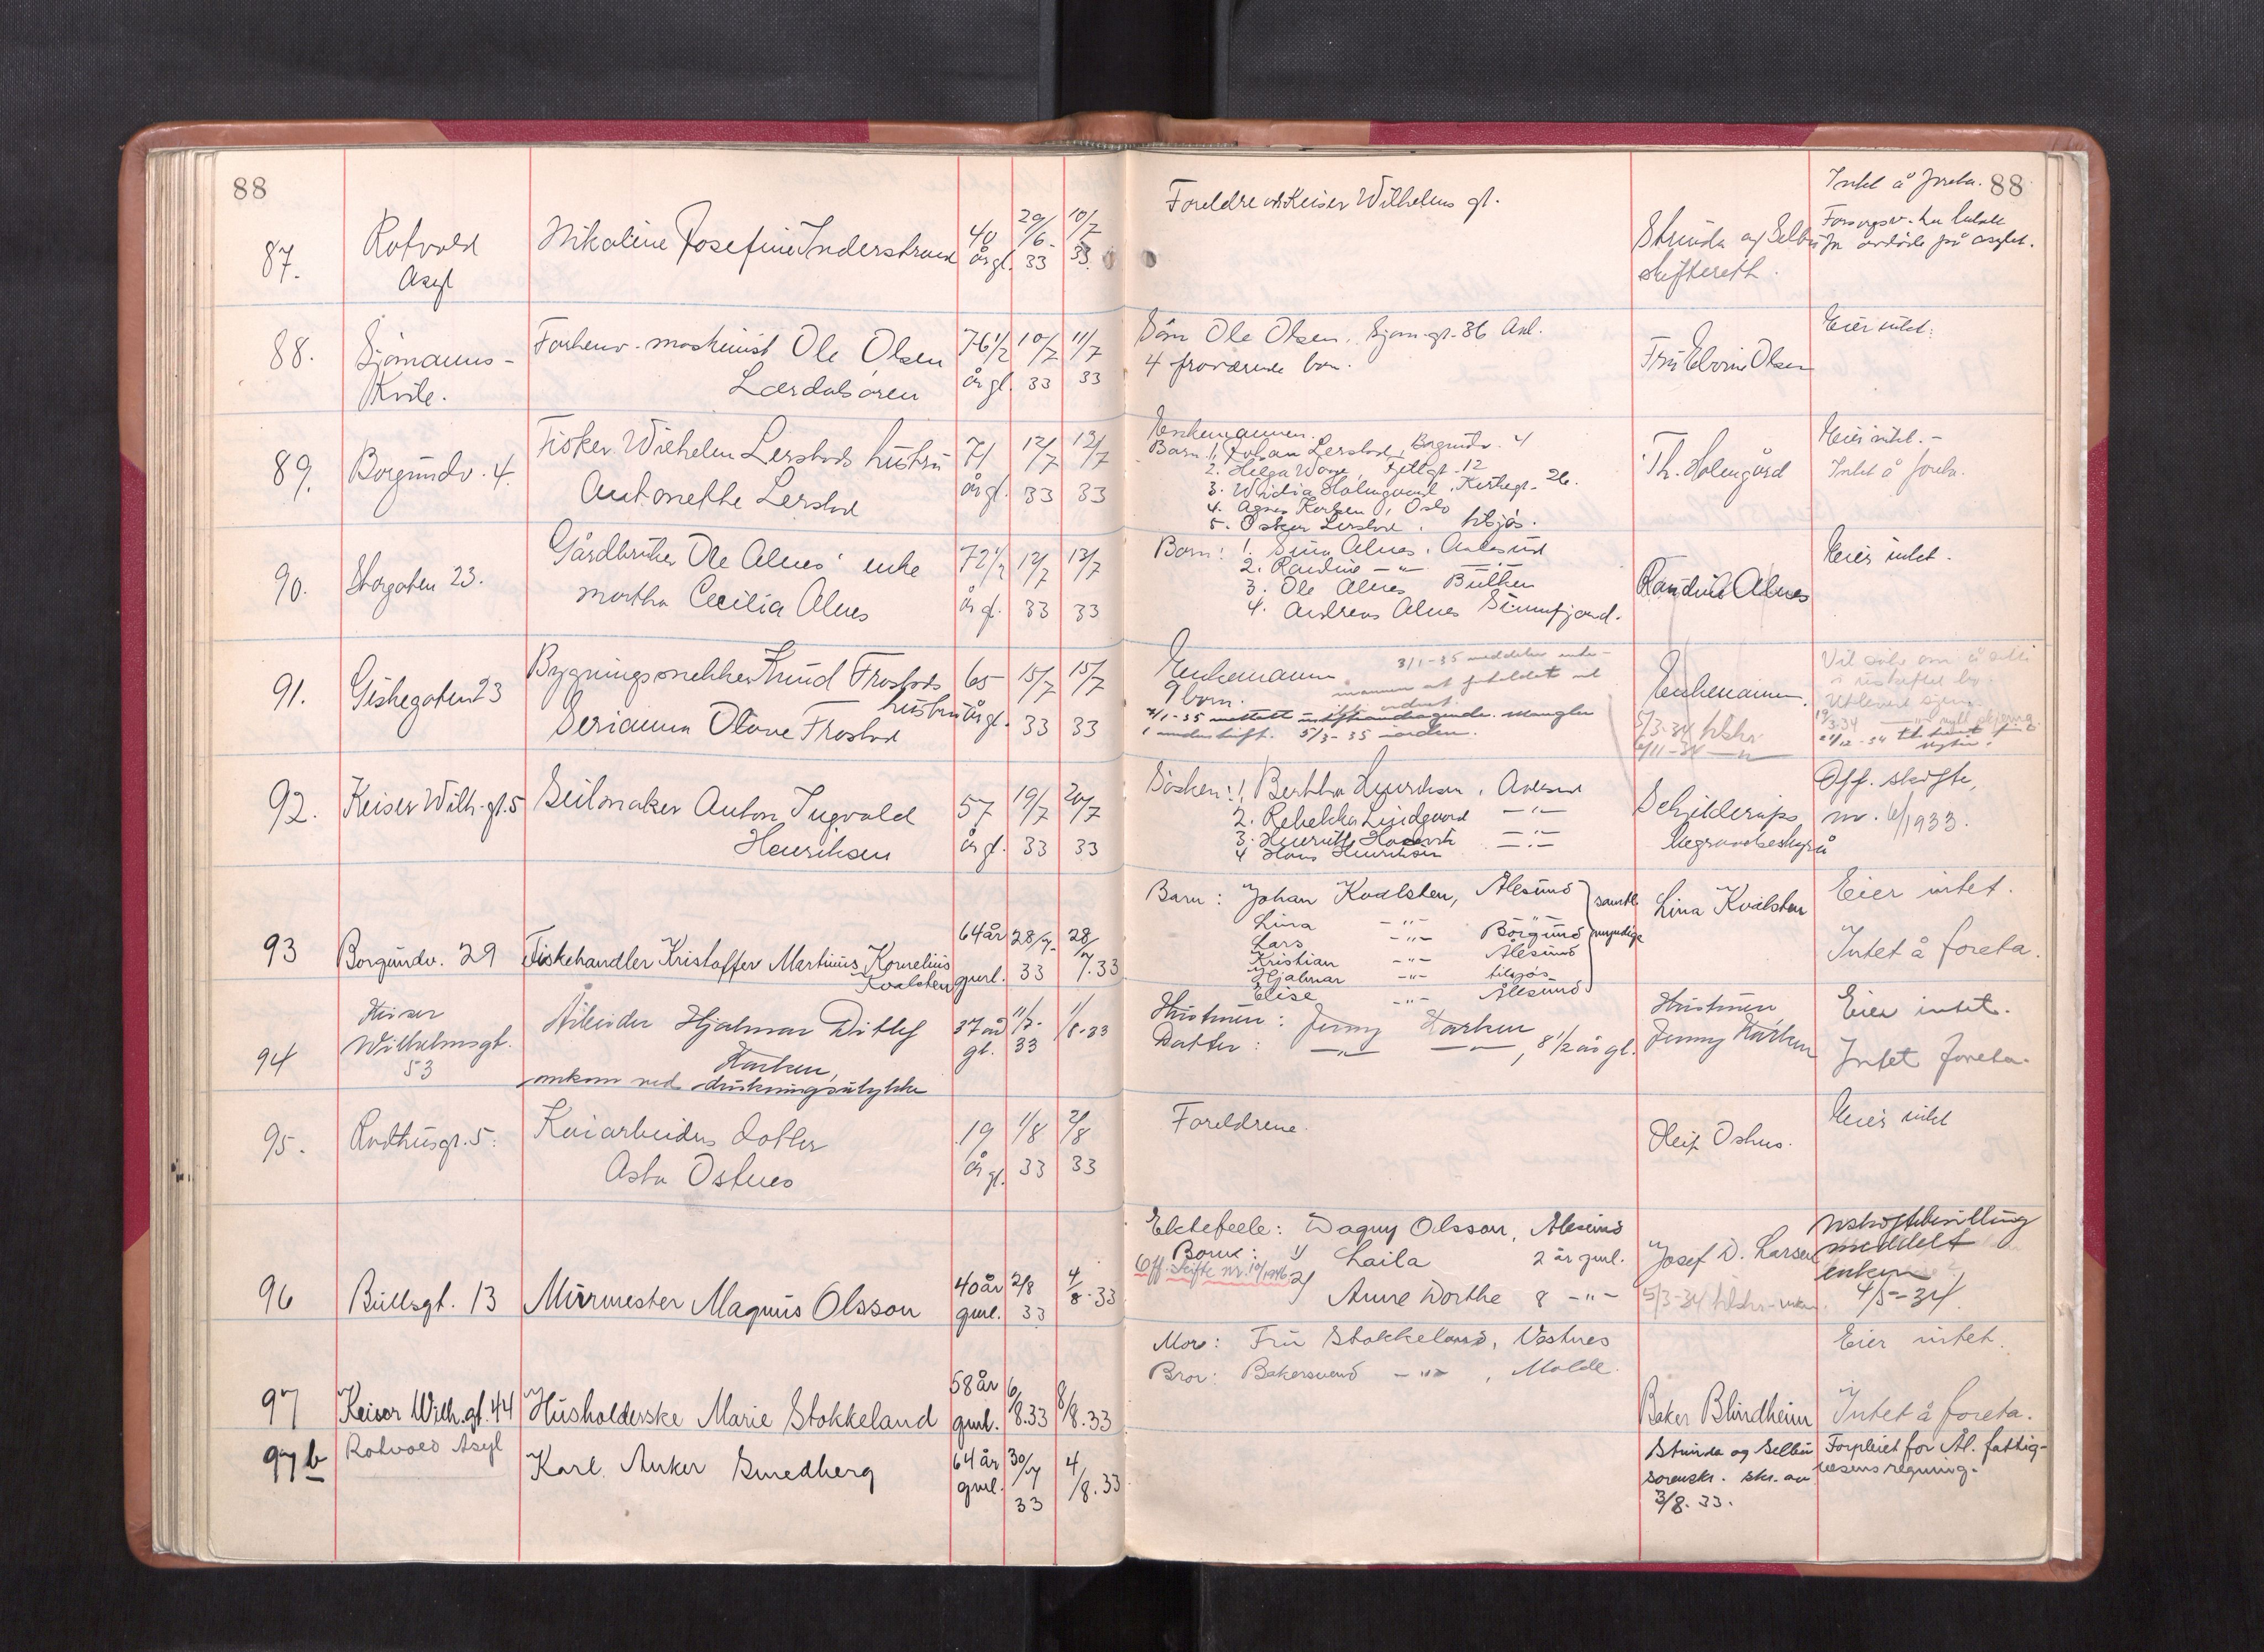 88
88
87.
Rotvold
Asyl
Nikoline Josefine Inderstrand
40
år gl.
29/6-
33
10/7
33.
Foreldre Keiser Wilhelms gt.
Strinda og Selbu
skifterett.
Intet å foreta.
Forsorgsv. har betalt
for avdöde på asylet.
88.
Sjömanns-
Kvile.
Forhenv. maskinist Ole Olsen
Lærdalsören
76 1/2
år gl.
10/7
33
11/7
33
Sön Ole Olsen, Sjom.gt. 36 Aal.
4 fraværende barn.
Fru Elvine Olsen
Eier intet.
89.
Borgundv. 4.
Fisker Wilhelm Lerstads hustru
Antonette Lerstad
71
år gl.
12/7
33
13/7
33
Enkemannen.
Barn: 1. Johan Lerstad, Borgundv. 4
2. Helga, Fjellgt. 12
3. Holmgaard, Kirkegt. 26.
4. Agnes, Oslo
5. Oskar Lerstad, tilsjös.
Th. Holmgård
Eier intet. -
Intet å foreta.
90.
Storgaten 23.
Gårdbruker Ole Alnes' enke
Martha Cecilia Alnes
72 1/2
år gl.
12/7
33
13/7
33
Barn: 1. Sina Alnes, Aalesund
2. Randine -"- -"-
3. Ole Alnes
4. Andreas Alnes
Randine Alnes
Eier intet.
91.
Giskegaten 23
Bygningssnekker Knud Frostads
hustru
Serianna Olave Frostad
65
år gl.
15/7
33
15/7
33
Enkemann
9 barn.
3/1-35 meddeler enke-
mannen at
underskrift. 5/3-35 i orden.
Enkemannen.
5/3-34 tilskr.
6/11-34 -"-
Vil söke om å sitte
i uskiftet bo.
Utlevert skjema
92.
Keiser Wilh. gt. 5
Seilmaker Anton Ingvald
Henriksen
57
år gl.
19/7
33
20/7
33
Sösken: 1. Bertha Henriksen, Aalesund
2. Rebekka Lindgaard -"-
3. Henriette -"-
4 Hans Henriksen
Schjelderups
Begravelsesbyrå
Off. skifte,
nr. 6/1933.
93
Borgundv. 29
Fiskehandler Kristoffer Martinus Kornelius
Kvalsten
64 år
gml.
28/7-
33
28/7.33
Barn: Johan Kvalsten, Ålesund
Lina -"- "
Lars -"- Borgund
Kristian -"- Ålesund
Hjalmar -"- tilsjös
Elise -"- Ålesund
samtl.
myndige
Lina Kvalsten
Eier intet.
Intet å foreta.
94
Keiser
Wilhelmsgt.
53
Arbeider Hjalmar Ditlef
Harken,
omkom ved drukningsulykke
37 år
gl.
11/7-
33
1/8-33
Hustruen: Jenny Harken
Datter: -"- -"-, 8 1/2 år gl.
Hustruen
Jenny Harken
Eier intet.
Intet foreta.
95.
Rådhusgt. 5.
Kaiarbeiders datter
Asta Osnes
19
år gl.
1/8
33
2/8
33
Foreldrene.
Eier intet
96
Bullsgt. 13
Murmester Magnus Olsson
40 år
gml.
2/8
33
4/8.33
Ektefelle: Dagny Olsson, Ålesund
Barn: 1/ Laila 2 år gml.
Off. Skifte nr. 10/1946
2/ Anne Dorthe 8 -"-
Josef D. Larsen
5/3-34 tilskr.
Uskiftebevilling
meddelt
enken
4/5-34
97
Keiser Wilh. gt. 44
Husholderske Marie Stokkeland
58 år
gml.
6/8.33
8/8.33
Mor: Fru Stokkeland, Vestnes
Bror: Bakersvend -"-, Molde.
Baker Blindheim
Eier intet.
Intet å foreta.
97b
Rotvold Asyl
Karl Anker Smedberg
64 år
gml.
30/7
33
4/8.33
Strinda og Selbu
sorenskr. skr. av
3/8.33.
Forpleiet for Ål. fattig-
vesens regning.